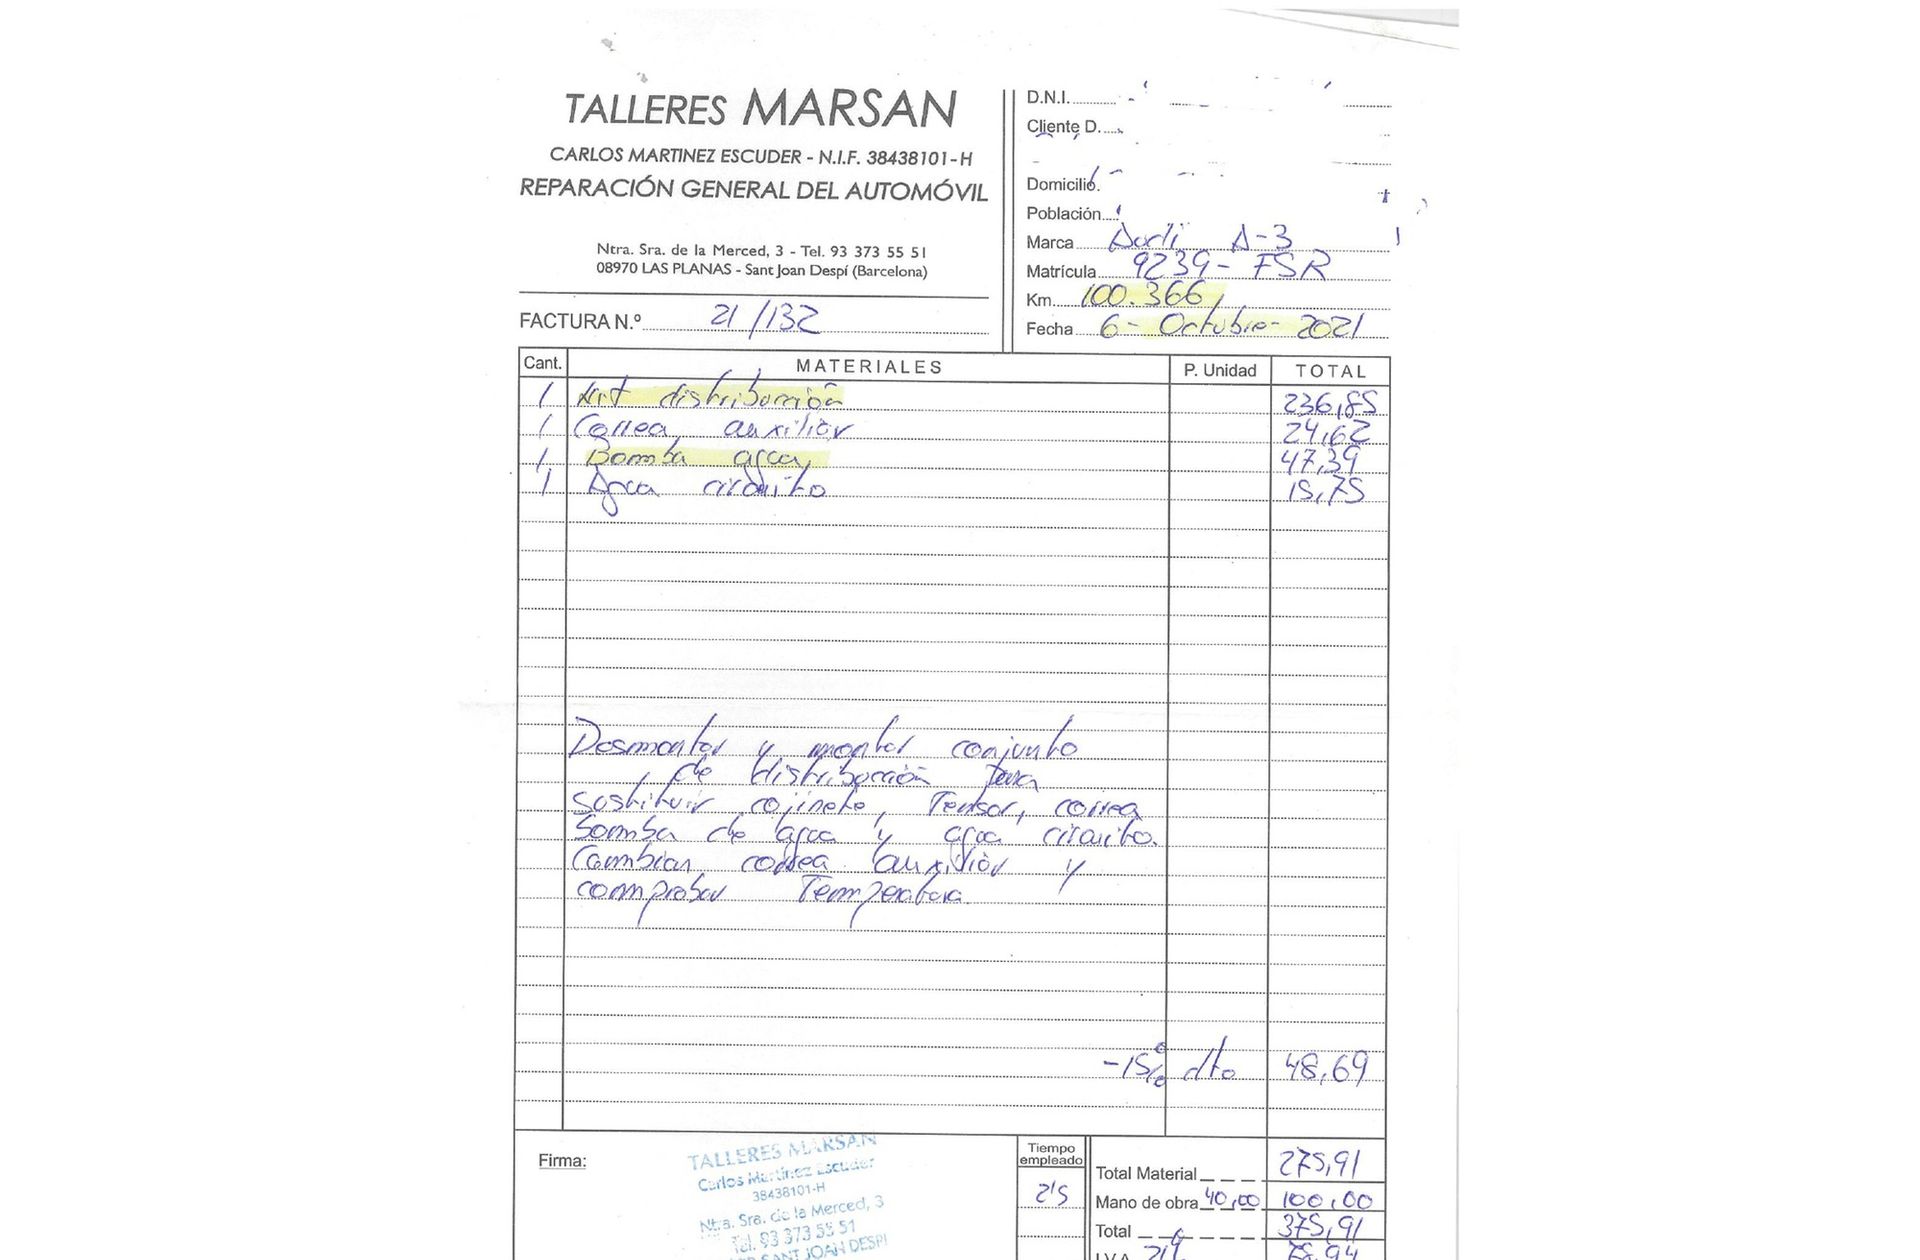 TALLERES MARSAN
CARLOS MARTINEZ ESCUDER - N.I.F. 38438101-H
REPARACIÓN GENERAL DEL AUTOMÓVIL
Ntra. Sra. de la Merced, 3 - Tel. 93 373 55 51
08970 LAS PLANAS - Sant Joan Despí (Barcelona)
FACTURA N.º 21/132
D.N.I.
Cliente D.
Domicilio.
Población
Marca Audi A-3
Matrícula 9239-FSR
Km. 100.366
Fecha 6-Octubre-2021
Cant. MATERIALES P. Unidad TOTAL
1 Kit distribución 236,85
1 Correa auxiliar 24,62
1 Bomba agua 47,39
1 Agua circuito 15,75
Desmontar y montar conjunto
de distribución para
sostituir cojinete, Tensor, correa
bomba de agua y agua circuito.
Cambiar correa auxiliar y
comprobar Temperatura.
-15% dto 48,69
Firma:
TALLERES MARSAN
Carlos Martínez Escuder
38438101-H
Ntra. Sra. de la Merced, 3
Tel. 93 373 55 51
SANT JOAN DESPI
Tiempo
empleado
2'5
Total Material 275,91
Mano de obra 40,00 100,00
Total 375,91
I.V.A. 21% 78,94